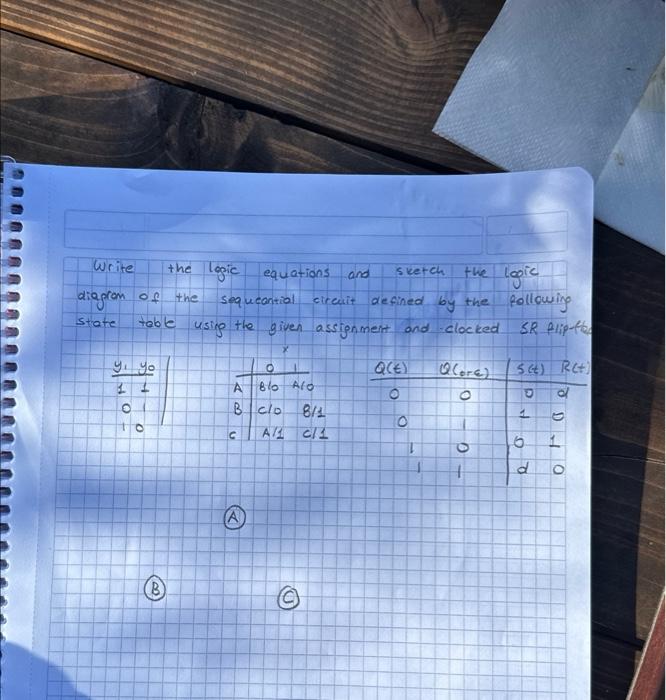 Write the logic equations and sketch the logic
diagram of the sequeantial circuit defined by the following
state table using the given assignment and clocked SR flip-flop
x
y₁ y₀ 0 1 Q(t) Q(t+ε) S(t) R(t)
1 1 A B/0 A/0 0 0 0 d
0 1 B C/0 B/1 0 1 1 0
1 0 C A/1 C/1 1 0 0 1
1 1 d 0
A
B C